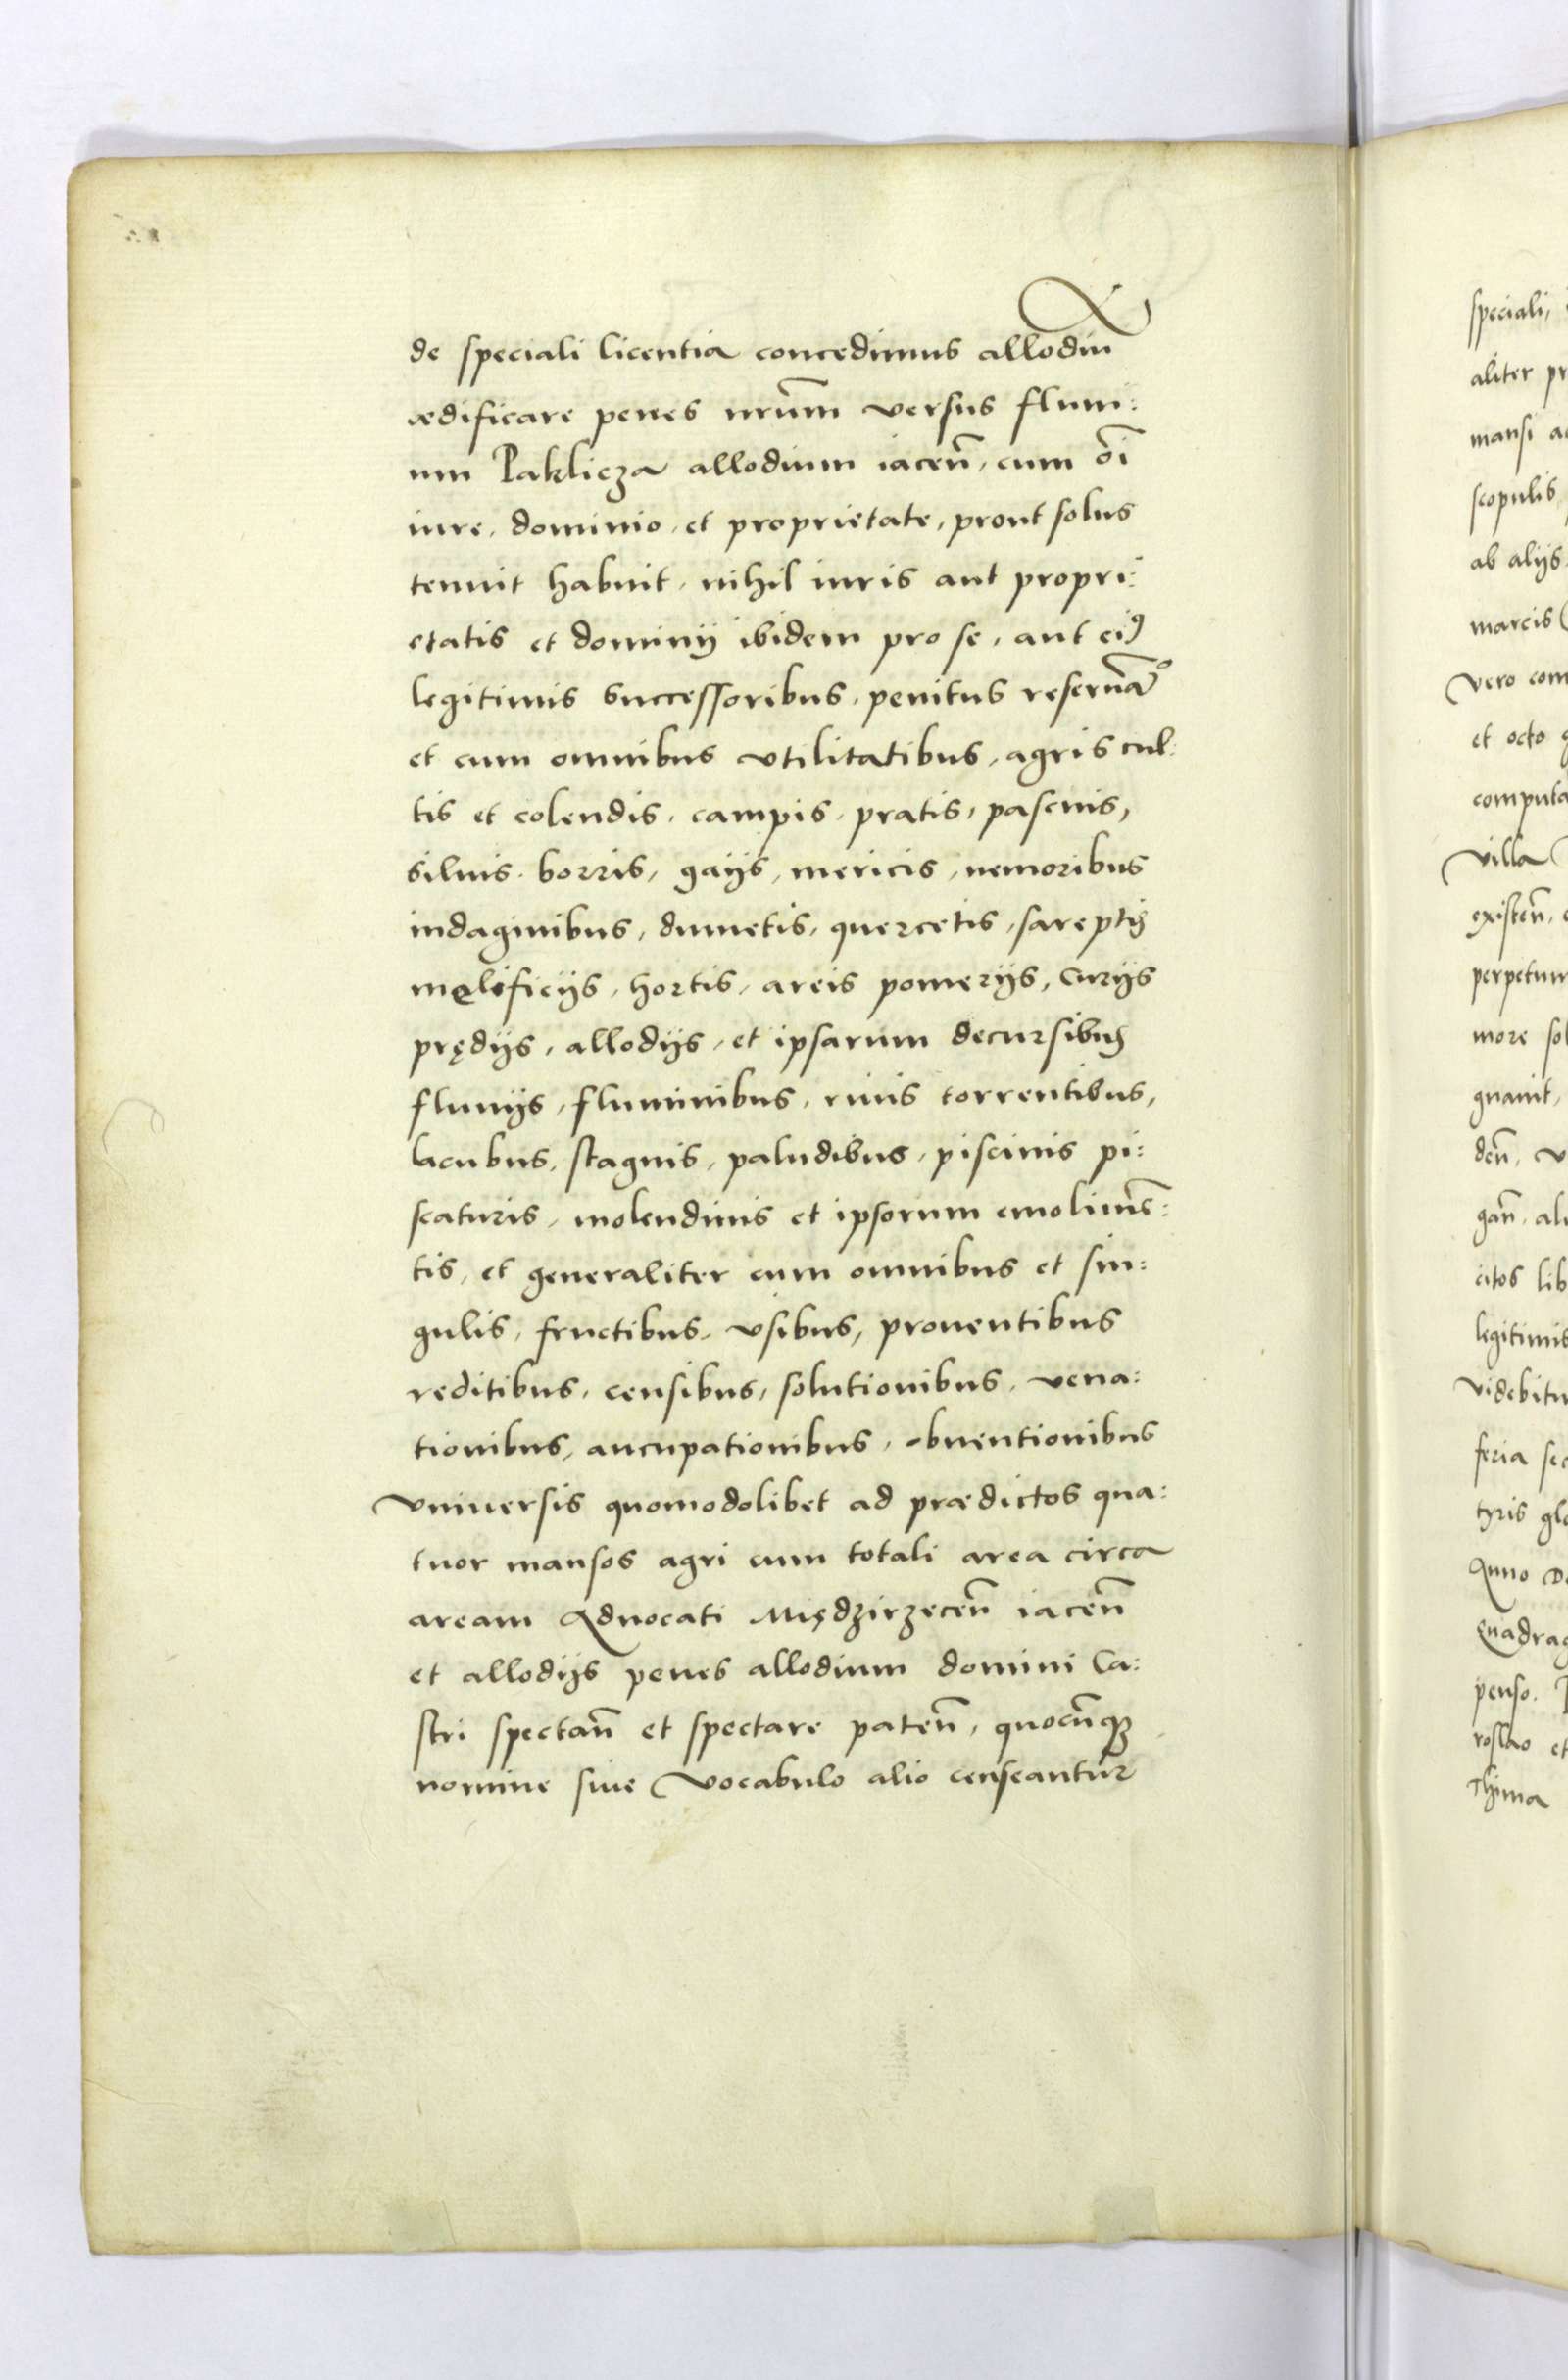 de speciali licentia concedimus allodiũ
ædificare penes nrũm versus fluui:
um Paklicza allodium iaceñ, cum õi
iure, dominio, et proprietate, prout solus
tenuit habuit, nihil iuris aut propri:
etatis et dominij ibidem pro se, aut eiꝰ
legitimis successoribus, penitus reseruãᵒ
et cum omnibus vtilitatibus, agris cul:
tis et colendis, campis, pratis, pascuis,
siluis, borris, gaijs, mericis, nemoribus
indaginibus, dumetis, quercetis, sareptis
melificijs, hortis, areis pomerijs, curijs
prędijs, allodijs, et ipsarum decursibus
fluuijs, fluminibus, riuis torrentibus,
lacubus, stagnis, paludibus, piscinis pi:
scaturis, molendinis et ipsorum emolimẽ:
tis, et generaliter cum omnibus et sin:
gulis, fructibus, vsibus, prouentibus
reditibus, censibus, solutionibus, vena:
tionibus, aucupationibus, obuentionibus
vniuersis quomodolibet ad prædictos qua:
tuor mansos agri cum totali area circa
aream Aduocati Mię​dzirzeceñ iaceñ
et allodijs penes allodium domini Ca:
stri spectañ et spectare poteñ, quocũqꝫ
nomine siue vocabulo alio censeantur
speciali,
aliter pr
mansi a
scopulis
ab alijs
marcis
vero com
et octo
computa
villa
existeñ,
perpetuu
more sol
gnauit,
deñ, v
gañ, ali
citos lib
legitimis
videbitu
feria sec
tyris glo
Anno Do
Quadrag
penso.
roslao et
Thima